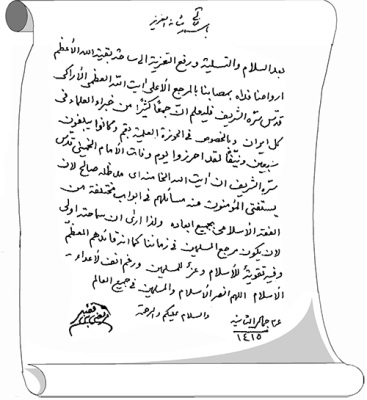 بعد السلام والتسلية ورفع التعزية الى ساحة بقية الله الأعظم
ارواحنا فداه بمصابنا بالمرجع الاعلى آيت الله العظمى الأراكى
قدس سره الشريف فليعلم ان جمعا كثيرا من خبراء العلماء فى
كل ايران وبالخصوص فى الحوزة العلمية بقم وكانوا يبلغون
سبعين ونيفا لقد احرزوا يوم وفات الأمام الخمينى قدس
سره الشريف ان آيت الله الخامنه اى مد ظله صالح لان
يستفتى المؤمنون عنه مسائلهم فى ابواب مختلفة من
الفقه الاسلامى بجميع ابعاده ولذا ارى ان ساحته اولى
لان يكون مرجع المسلمين فى زماننا كما انه قائدهم المعظم
وفيه تقوية للاسلام وعز للمسلمين ورغم انف لأعداء
الأسلام اللهم انصر الأسلام والمسلمين فى جميع العالم
والسلام عليكم والرحمة
جمادى الثانية
١٤١٥